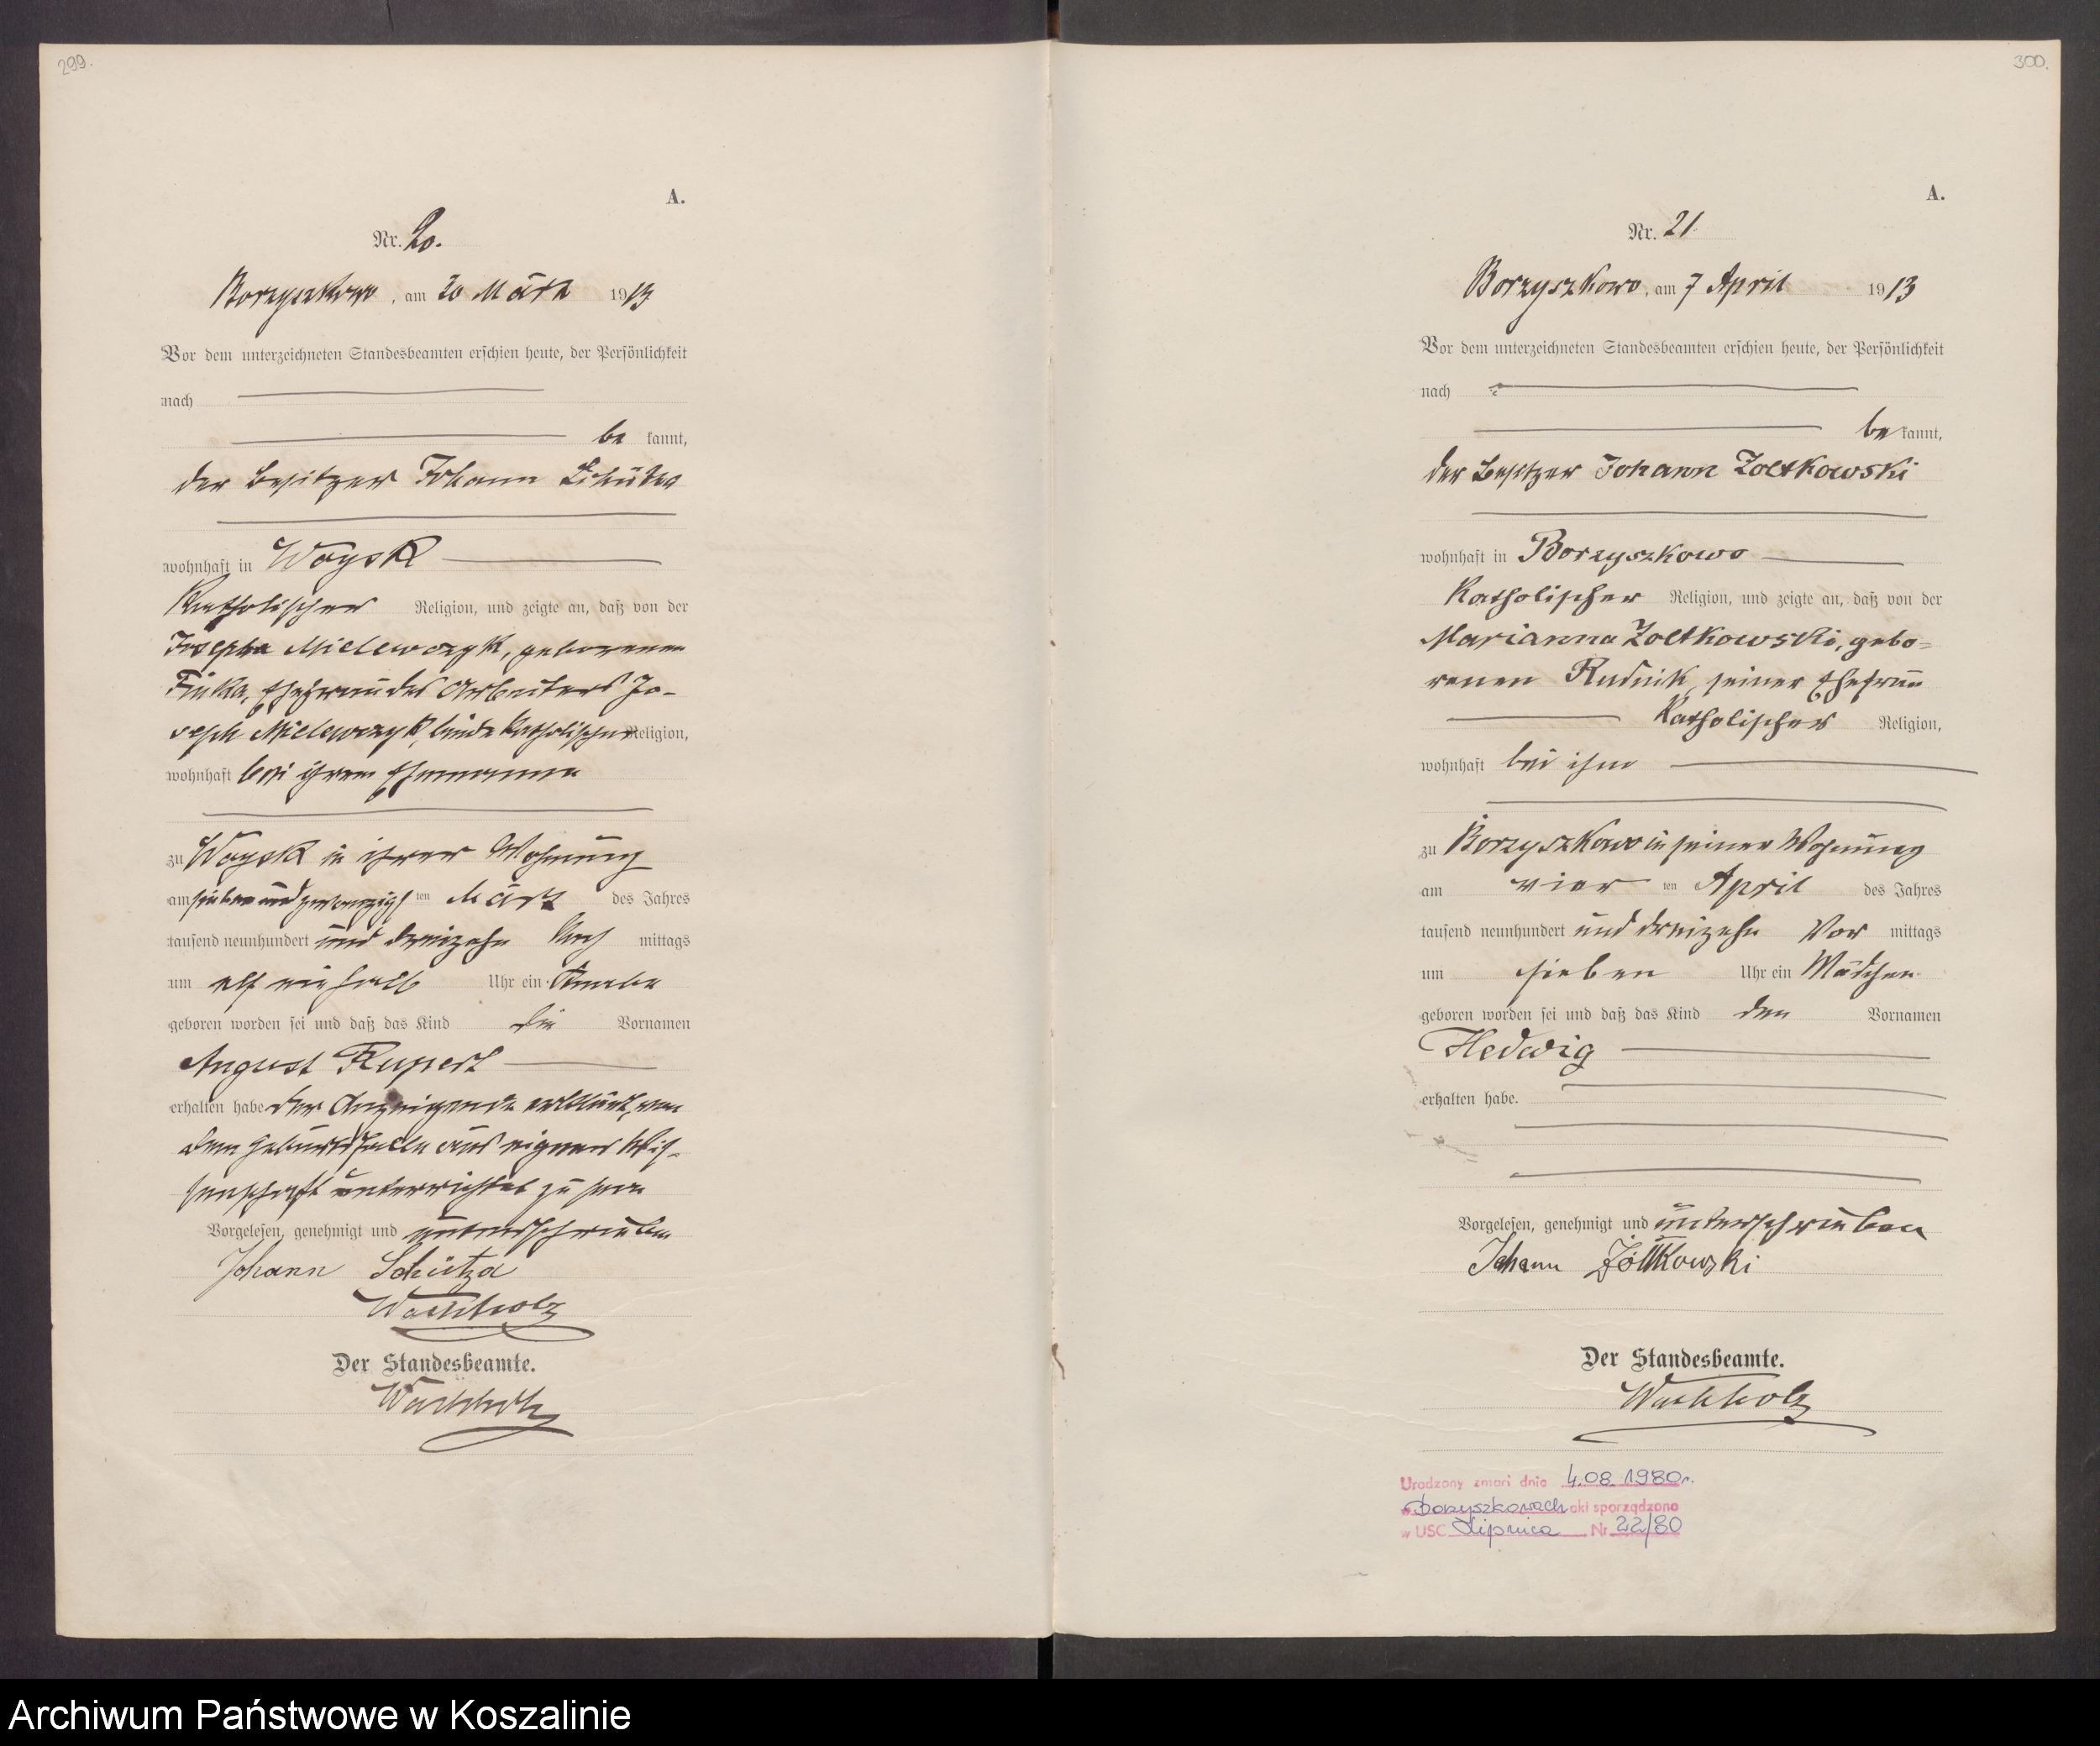 299.
A.
Nr. 20.
Borzyszkowo, am 20 März 1913
Vor dem unterzeichneten Standesbeamten erschien heute, der Persönlichkeit
nach
be kannt,
der Besitzer Johann Schütza
wohnhaft in Woysk
Katholischer Religion, und zeigte an, daß von der
Josepha Mielewczyk, geborenen
Finka, Ehefrau des Arbeiters Jo-
seph Mielewczyk, beide katholischer Religion,
wohnhaft bei ihrem Ehemanne
zu Woysk in ihrer Wohnung
am sieben und zwanzigsten März des Jahres
tausend neunhundert und dreizehn Nach mittags
um elf einhalb Uhr ein Knabe
geboren worden sei und daß das Kind die Vornamen
August Rupert
erhalten habe der Anzeigende erklärt, von
dem Geburtsfalle aus eigner Wis-
senschaft unterrichtet zu sein
Vorgelesen, genehmigt und unterschrieben
Johann Schütza
Wachholz
Der Standesbeamte.
Wachholz
300.
A.
Nr. 21
Borzyszkowo, am 7 April 1913
Vor dem unterzeichneten Standesbeamten erschien heute, der Persönlichkeit
nach
be kannt,
der Besitzer Johann Zoltkowski
wohnhaft in Borzyszkowo
Katholischer Religion, und zeigte an, daß von der
Marianna Zoltkowski, gebo-
renen Rudnik, seiner Ehefrau
Katholischer Religion,
wohnhaft bei ihm
zu Borzyszkowo in seiner Wohnung
am vier ten April des Jahres
tausend neunhundert und dreizehn Vor mittags
um sieben Uhr ein Mädchen
geboren worden sei und daß das Kind den Vornamen
Hedwig
erhalten habe.
Vorgelesen, genehmigt und unterschrieben
Johann Żółtkowski
Der Standesbeamte.
Wachholz
Urodzony zmarł dnia 4.08.1980r.
w Borzyszkowach akt sporządzono
w USC Lipnica Nr 22/80
Archiwum Państwowe w Koszalinie